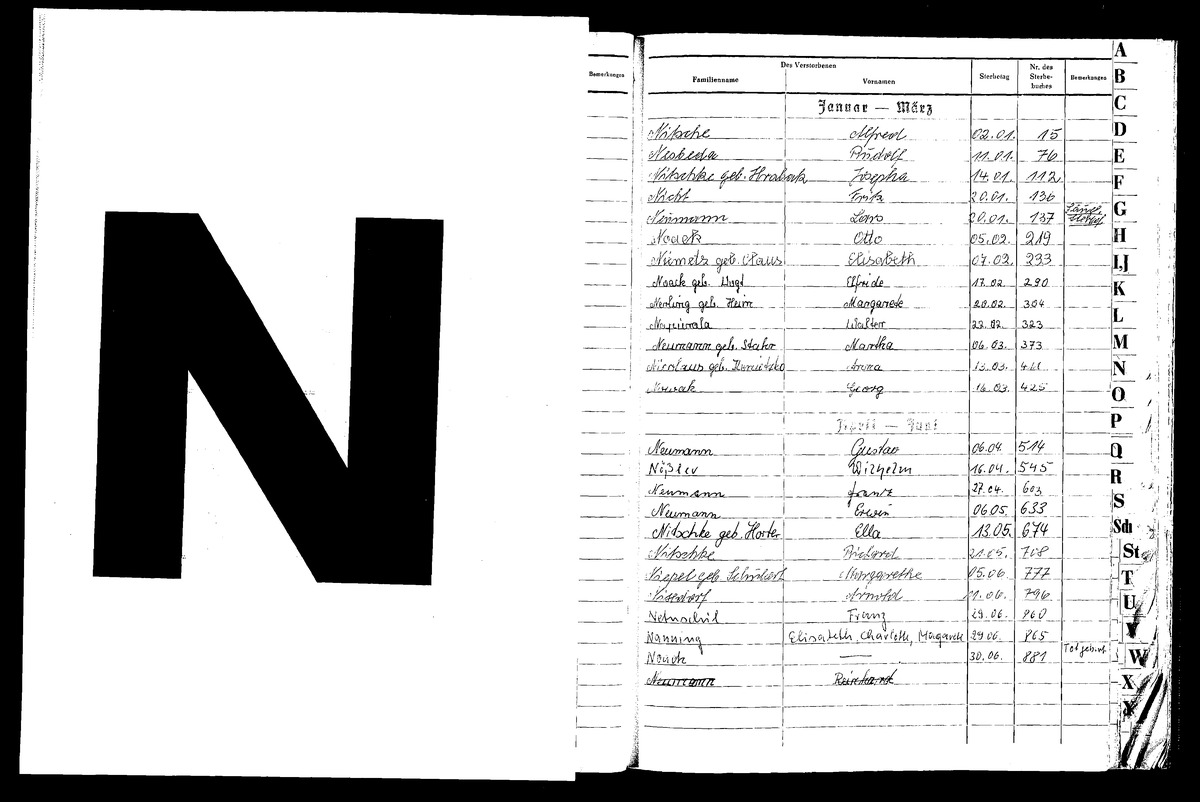 N
Bemerkungen
Des Verstorbenen
Familienname Vornamen Sterbetag Nr. des Sterbe-buches Bemerkungen
Januar — März
Nitsche Alfred 02.01. 15
Neskeda Rudolf 11.01. 76
Nitschke geb. Hrabak Josepha 14.01. 112
Nicht Fritz 20.01. 136
Neumann 20.01. 137
Noack Otto 05.02. 219
Niemetz geb. Claus Elisabeth 07.02. 233
Noack geb. Elfride 17.02. 290
geb. Margarete 20.02. 304
Walter 22.02. 323
Neumann geb. Martha 06.03. 373
Nicolaus geb. Anna 13.03. 411
Nowak Georg 16.03. 425
April — Juni
Neumann Gustav 06.04. 514
Nößler Wilhelm 16.04. 545
Neumann Frantz 27.04. 603
Neumann Erwin 06.05. 633
Nitschke geb. Horter Ella 13.05. 674
Nitschke Richard 21.05. 708
geb. Margarethe 05.06. 777
Arnold 11.06. 796
Netuschil Franz 29.06. 860
Nanning Elisabeth, Charlotte, Margarete 29.06. 865
Noack — 30.06. 881 Totgeburt
Neumann Reinhardt
A
B
C
D
E
F
G
H
I,J
K
L
M
N
O
P
Q
R
S
Sch
St
T
U
V
W
X
Y